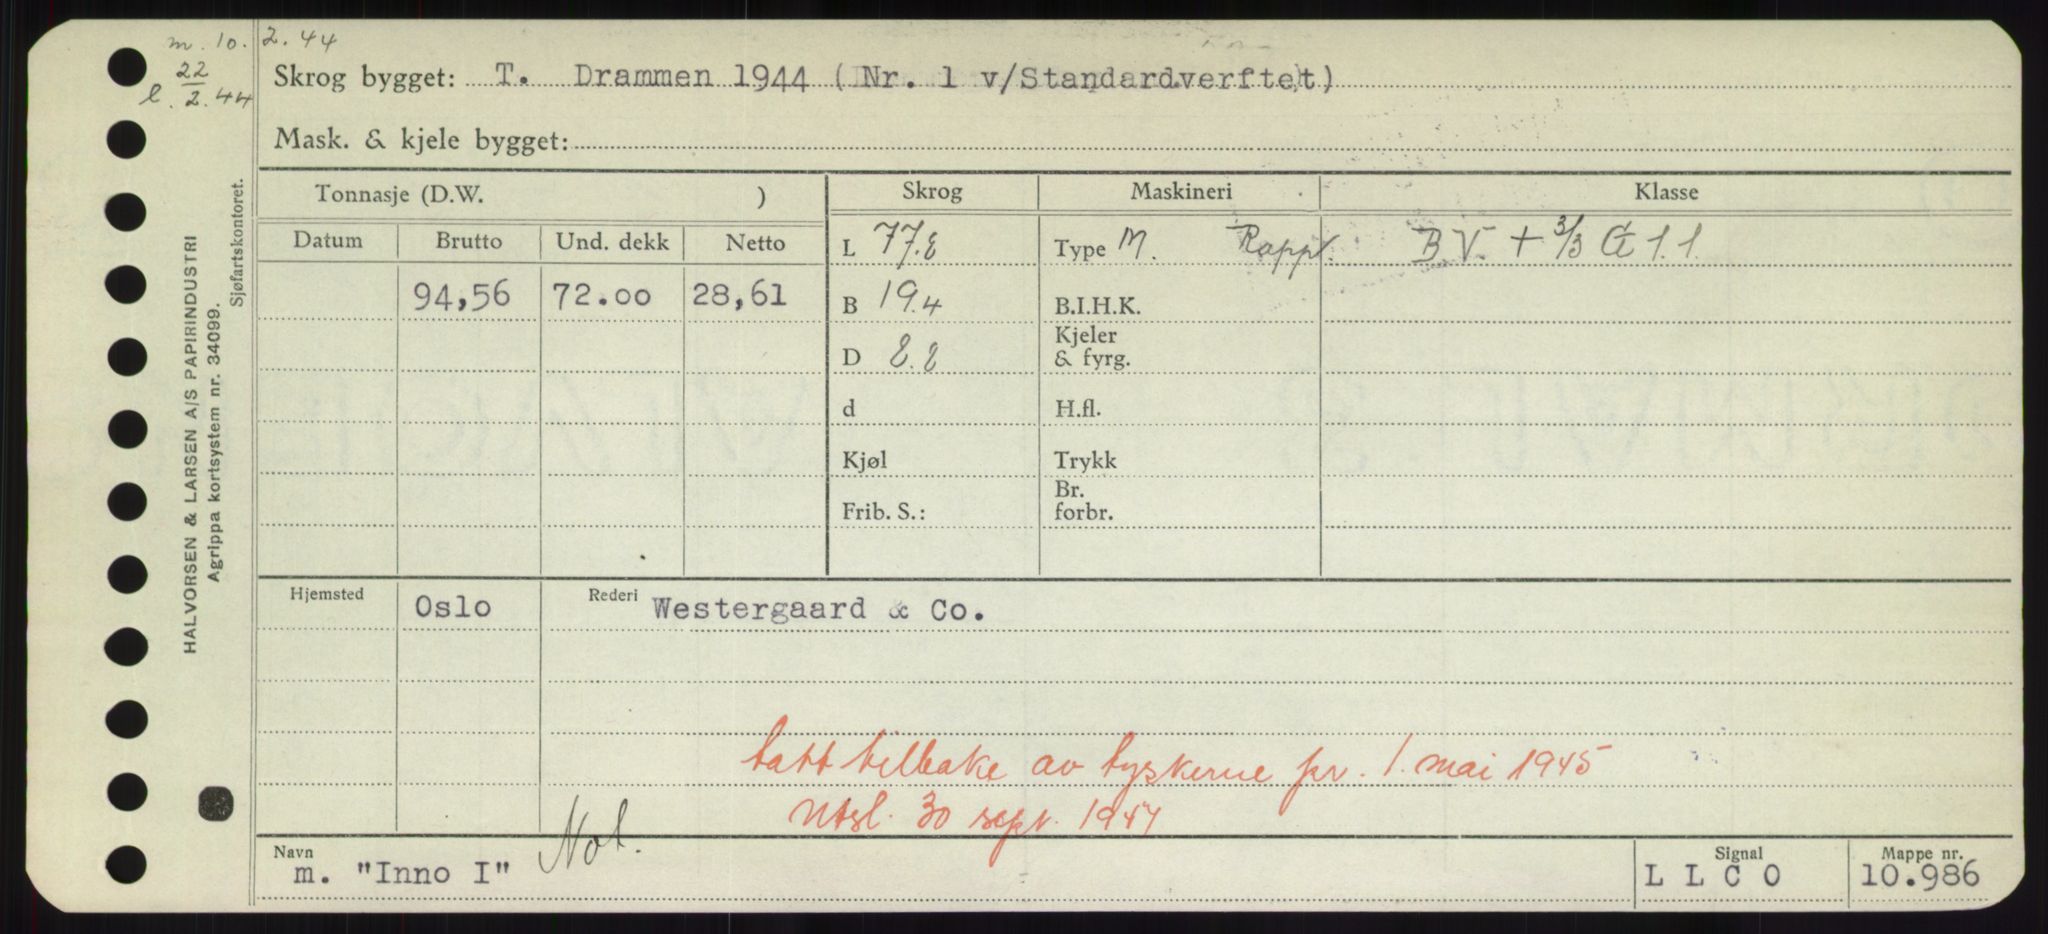 m. 10. 2. 44
l. 22/2. 44
Skrog bygget: T. Drammen 1944 (Nr. 1 v/Standardverftet)
Mask. & kjele bygget:
Tonnasje (D.W. )
Skrog
Maskineri
Klasse
Datum
Brutto
Und. dekk
Netto
L 77.8
Type M. Rappt.
B.V. + 3/3 1.1.
94,56
72.00
28,61
B 19.4
B.I.H.K.
D 8.8
Kjeler
& fyrg.
d
H.fl.
Kjøl
Trykk
Frib. S.:
Br.
forbr.
Hjemsted
Oslo
Rederi
Westergaard & Co.
tatt tilbake av tyskerne pr. 1. mai 1945
Utsl. 30 sept. 1947
Not.
Navn
m. "Inno I"
Signal
L L C O
Mappe nr.
10.986
HALVORSEN & LARSEN A/S PAPIRINDUSTRI
Agrippa kortsystem nr. 34099.
Sjøfartskontoret.